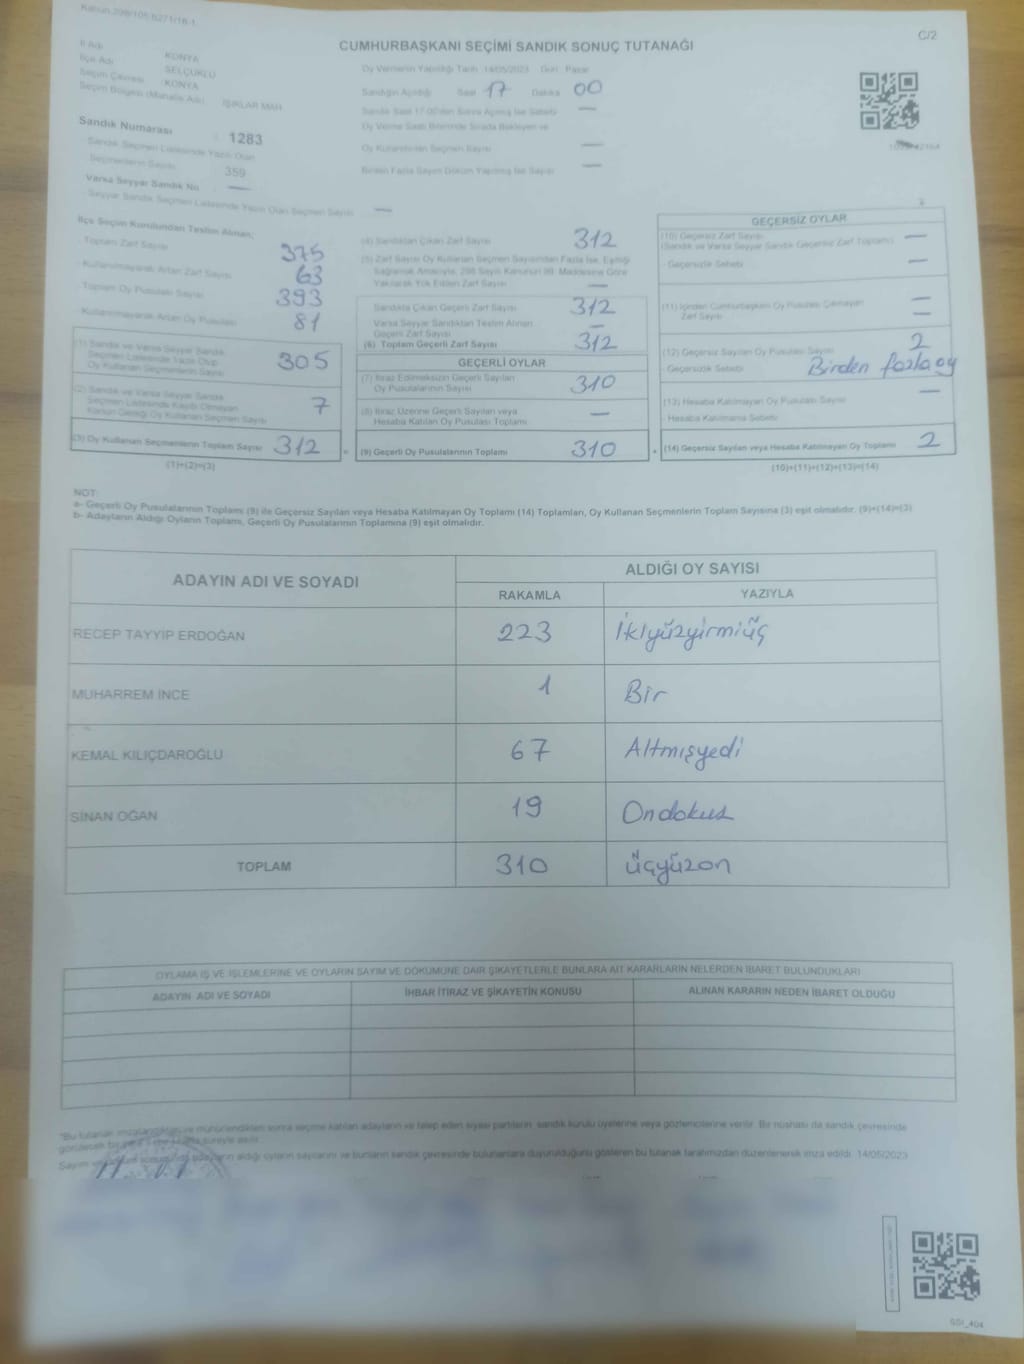 Kanun:298/105 B271/18-1
C/2
CUMHURBAŞKANI SEÇİMİ SANDIK SONUÇ TUTANAĞI
İl Adı KONYA
İlçe Adı SELÇUKLU
Seçim Çevresi KONYA
Seçim Bölgesi (Mahalle Adı) IŞIKLAR MAH
Sandık Numarası : 1283
Sandık Seçmen Listesinde Yazılı Olan
Seçmenlerin Sayısı 359
Varsa Seyyar Sandık No —
Seyyar Sandık Seçmen Listesinde Yazılı Olan Seçmen Sayısı —
Oy Vermenin Yapıldığı Tarih 14/05/2023 Gün Pazar
Sandığın Açıldığı Saat 17 Dakika 00
Sandık Saat 17.00'den Sonra Açılmış İse Sebebi —
Oy Verme Saati Bitiminde Sırada Bekleyen ve
Oy Kullandırılan Seçmen Sayısı —
Birden Fazla Sayım Döküm Yapılmış İse Sayısı —
İlçe Seçim Kurulundan Teslim Alınan;
- Toplam Zarf Sayısı 375
- Kullanılmayarak Artan Zarf Sayısı 63
- Toplam Oy Pusulası Sayısı 393
- Kullanılmayarak Artan Oy Pusulası 81
(1) Sandık ve Varsa Seyyar Sandık
Seçmen Listesinde Yazılı Olup
Oy Kullanan Seçmenlerin Sayısı 305
(2) Sandık ve Varsa Seyyar Sandık
Seçmen Listesinde Kaydı Olmayan
Kanun Gereği Oy Kullanan Seçmen Sayısı 7
(3) Oy Kullanan Seçmenlerin Toplam Sayısı 312
(1)+(2)=(3)
(4) Sandıktan Çıkan Zarf Sayısı 312
(5) Zarf Sayısı Oy Kullanan Seçmen Sayısından Fazla İse, Eşitliği
Sağlamak Amacıyla, 298 Sayılı Kanunun 98. Maddesine Göre
Yakılarak Yok Edilen Zarf Sayısı —
Sandıkta Çıkan Geçerli Zarf Sayısı 312
Varsa Seyyar Sandıktan Teslim Alınan
Geçerli Zarf Sayısı —
(6) Toplam Geçerli Zarf Sayısı 312
GEÇERLİ OYLAR
(7) İtiraz Edilmeksizin Geçerli Sayılan
Oy Pusulalarının Sayısı 310
(8) İtiraz Üzerine Geçerli Sayılan veya
Hesaba Katılan Oy Pusulası Toplamı —
= (9) Geçerli Oy Pusulalarının Toplamı 310
GEÇERSİZ OYLAR
(10) Geçersiz Zarf Sayısı —
(Sandık ve Varsa Seyyar Sandık Geçersiz Zarf Toplamı)
- Geçersizlik Sebebi —
(11) İçinden Cumhurbaşkanı Oy Pusulası Çıkmayan —
Zarf Sayısı —
(12) Geçersiz Sayılan Oy Pusulası Sayısı 2
- Geçersizlik Sebebi Birden fazla oy
(13) Hesaba Katılmayan Oy Pusulası Sayısı —
- Hesaba Katılmama Sebebi
+ (14) Geçersiz Sayılan veya Hesaba Katılmayan Oy Toplamı 2
(10)+(11)+(12)+(13)=(14)
NOT:
a- Geçerli Oy Pusulalarının Toplamı (9) ile Geçersiz Sayılan veya Hesaba Katılmayan Oy Toplamı (14) Toplamları, Oy Kullanan Seçmenlerin Toplam Sayısına (3) eşit olmalıdır. (9)+(14)=(3)
b- Adayların Aldığı Oyların Toplamı, Geçerli Oy Pusulalarının Toplamına (9) eşit olmalıdır.
ADAYIN ADI VE SOYADI ALDIĞI OY SAYISI
RAKAMLA YAZIYLA
RECEP TAYYİP ERDOĞAN 223 İkiyüzyirmiüç
MUHARREM İNCE 1 Bir
KEMAL KILIÇDAROĞLU 67 Altmışyedi
SİNAN OĞAN 19 Ondokuz
TOPLAM 310 üçyüzon
OYLAMA İŞ VE İŞLEMLERİNE VE OYLARIN SAYIM VE DÖKÜMÜNE DAİR ŞİKAYETLERLE BUNLARA AİT KARARLARIN NELERDEN İBARET BULUNDUKLARI
ADAYIN ADI VE SOYADI İHBAR İTİRAZ VE ŞİKAYETİN KONUSU ALINAN KARARIN NEDEN İBARET OLDUĞU
*Bu tutanak imzalandıktan ve mühürlendikten sonra seçime katılan adayların ve talep eden siyasi partilerin sandık kurulu üyelerine veya gözlemcilerine verilir. Bir nüshası da sandık çevresinde
görülecek bir yere süreyle asılır.
Sayım aldığı oyların sayılarını ve bunların sandık çevresinde bulunanlara duyurulduğunu gösteren bu tutanak tarafımızdan düzenlenerek imza edildi. 14/05/2023